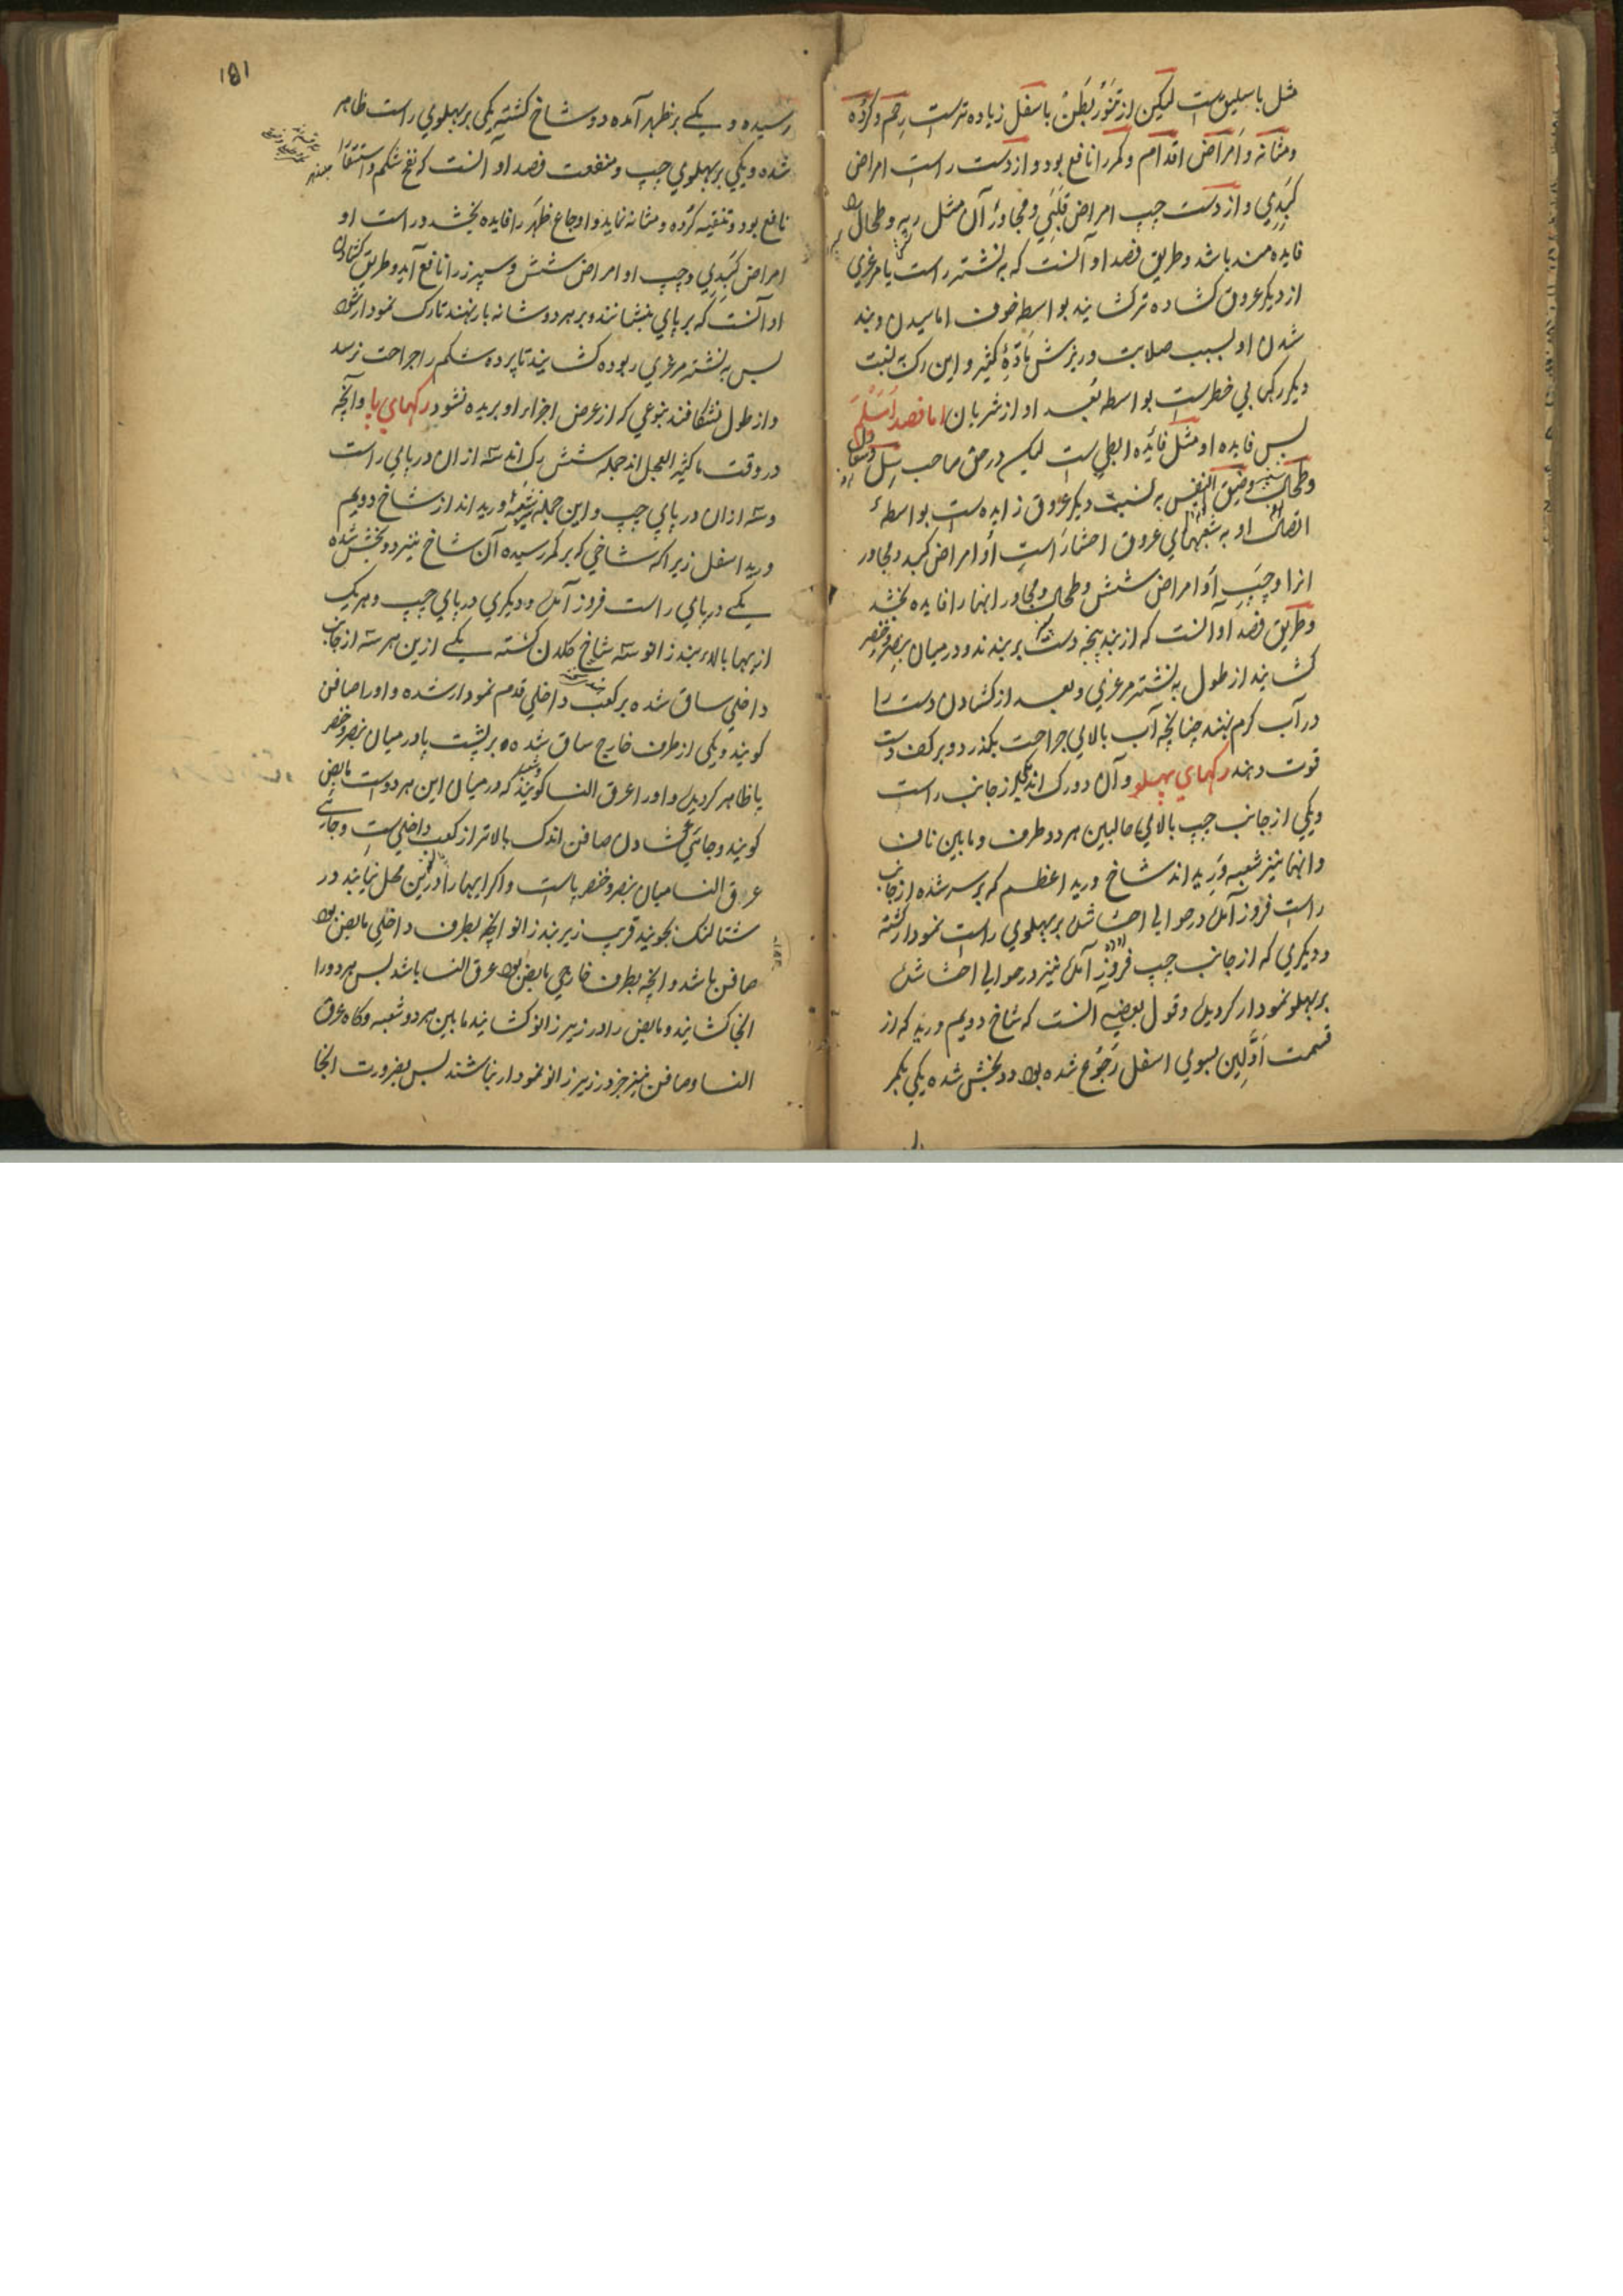 مثل باسلیق ست لیکن از تنور بطن باسفل زیاده ترست رحم و کرده
ومثانه وامراض اقدام وکمر را نافع بود واز دست راست امراض
کبدی واز دست چپ امراض قلبی ومجاور آن مثل ریه وطحال را
فایده مند باشد وطریق فصد او آنست که به نشتر راست یا مرغزی
از دیگر عروق کشاده تر کشایند بواسطه خوف اماسیدن وبند
شدن او بسبب صلابت وریزش مادّهٔ کثیر واین رک به نسبت
دیگر رکها بی خطرست بواسطه بُعد او از شریان اما فصد اَسَیْلَمْ
پس فایده او مثل فائده ابطی ست لیکن در حق صاحب سل
وطحال وضیق النفس به نسبت دیگر عروق زایده ست بواسطهٔ
اتصال او به شعبهای عروق احشا راست او امراض کبد ومجاور
انرا وچپ او امراض شش وطحال ومجاور انها را فایده بخشد
وطریق فصد او آنست که از بند پنجه دست بربندند ودر میان بنصر وخنصر
کشایند از طول به نشتر مرغزی وبعد از کشادن دست را
در آب کرم نهند چنانچه آب بالای جراحت بگذرد وبر کف دست
قوت دهند رکهای پهلو وآن دو رک اند یکی از جانب راست
ویکی از جانب چپ بالای حالبین هر دو طرف وما بین ناف
وانها نیز شعبه وَرِید اند شاخ ورید اعظم که بر سر شده از جانب
راست فروز آمده در حوالی احشا شده بر پهلوی راست نمودار کشته
ودیگری که از جانب چپ فروز آمده نیز در حوالی احشا شده
بر پهلو نمودار کردیده وقول بعضی آنست که شاخ دویم ورید که از
قسمت اَوَّلِین بسوی اسفل رَجُوع شده بود دو بخش شده یکی بکمر
۱۵۱
رسیده و یکے بر ظهر آمده دو شاخ کشته یکی بر پهلوی راست ظاهر
شده ویکی بر پهلوی چپ ومنفعت فصد او آنست که نفخ شکم واستسقا را
نافع بود وتنقیه کرده ومثانه نماید واوجاع ظهر را فایده بخشد وراست او
امراض کبدی وچپ او امراض شش وسپرز را نافع آید وطریق کشادن
او آنست که بر پای بنشانند وبر هر دو شانه بار نهند تا رک نمودار شود
پس به نشتر مرغزی ربوده کشایند تا پرده شکم را جراحت نرسد
واز طول بشکافند بنوعی که از عرض اجزاء او بریده نشود رکهای پا وآنچه
در وقت ما کثیر العمل اند جمله شش رک اند سه ازان در پای راست
وسه ازان در پای چپ واین جمله نیز شعبهٔ ورید اند از شاخ دویم
ورید اسفل زیرا که شاخی که بر کمر رسیده آن شاخ نیز دو بخش شده
یکے در پای راست فروز آمده ودیگری در پای چپ وهر یک
ازیهما بالاء بند زانو سه شاخ کلان کشته یکے ازین هر سه از جانب
داخلی ساق شده بر کعب داخلی قدم نمودار شده واو را صافن
کویند ویکی از طرف خارج ساق شده بر پشت پا در میان بنصر وخنصر
پا ظاهر کردیده واو را عرق النسا کویند که در میان این هر دوست مابض
کویند وجای کشادن صافن اندک بالاتر از کعب داخلی ست وجای
عرق النسا میان بنصر وخنصر پاست واکر ایهما را درین محل نیابند در
شتالنک بجویند قریب زیر بند زانو انچه بطرف داخلی مابض بود
صافن باشد وانچه بطرف خارجی مابض بود عرق النسا باشد پس هر دو را
انجا کشایند ومابض را در زیر زانو کشایند مابین هر دو شعبه وکاه عرق
النسا وصافن نیز جز در زیر زانو نمودار نباشند پس بضرورت انجا